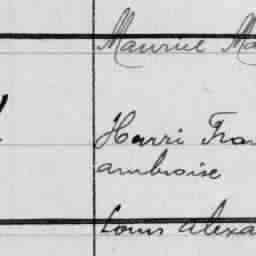 Maurice Ma
Henri Fra
ambroise
Louis Alexa